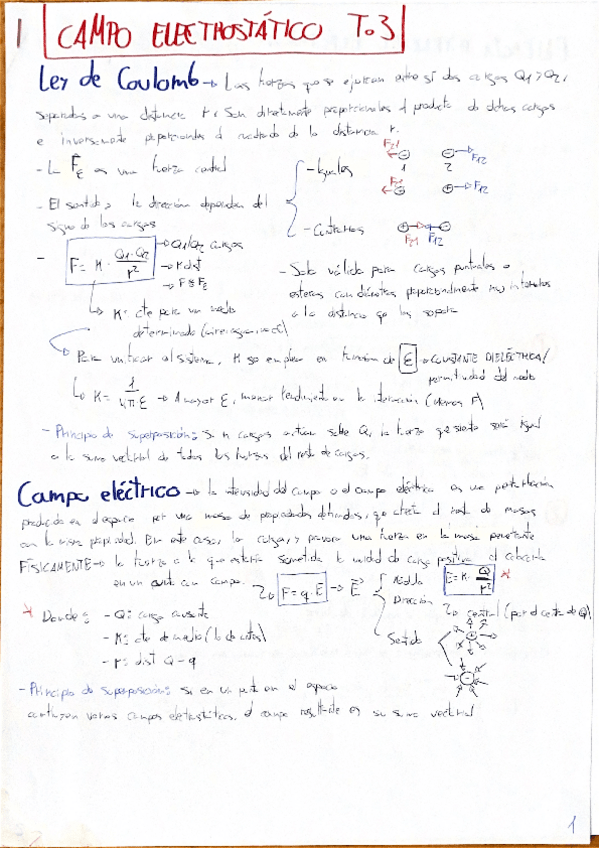 1 CAMPO ELECTROSTÁTICO T.3
Ley de Coulomb → Las fuerzas que se ejercen entre sí dos cargas Q1 y Q2,
separadas a una distancia r, son directamente proporcionales al producto de dichas cargas
e inversamente proporcionales al cuadrado de la distancia r.
- La FE es una fuerza central
- Iguales
F21 1 2 F12
F21 F12
- El sentido y la dirección dependen del
signo de las cargas
- Contrarios
F21 F12
- F = K · Q1·Q2 / r² → Q1/Q2 cargas
→ r dist
→ F ≡ FE
- Solo válida para cargas puntuales o
esferas con diámetros proporcionalmente muy
a la distancia que las separa
↳ K: cte para un medio
determinado
→ Para unificar el sistema, K se emplea en función de ε → CONSTANTE DIELÉCTRICA/
permitividad del medio
↳ K = 1 / 4π·ε → A mayor ε, menor en la interacción (menos F)
- Principio de superposición: Si n cargas actúan sobre Q, la fuerza que siente será igual
a la suma vectorial de todas las fuerzas del resto de cargas.
Campo eléctrico → la intensidad del campo o el campo eléctrico es una perturbación
producida en el espacio por una masa de propiedades definidas, que afecta al resto de masas
con la misma propiedad. En este caso, la carga, y provoca una fuerza en la masa
FÍSICAMENTE → la fuerza a la que estaría sometida la unidad de carga positiva al colocarla
en un punto con campo.
F = q·E → E
Módulo E = K · Q / r² *
Dirección → central (por el centro de Q)
Sentido + -
* Donde: - Q: carga
- K: cte de medio (la de antes)
- r: dist Q-q
- Principio de superposición: si en un punto en el espacio
varios campos electrostáticos, el campo resultante es su suma vectorial
1